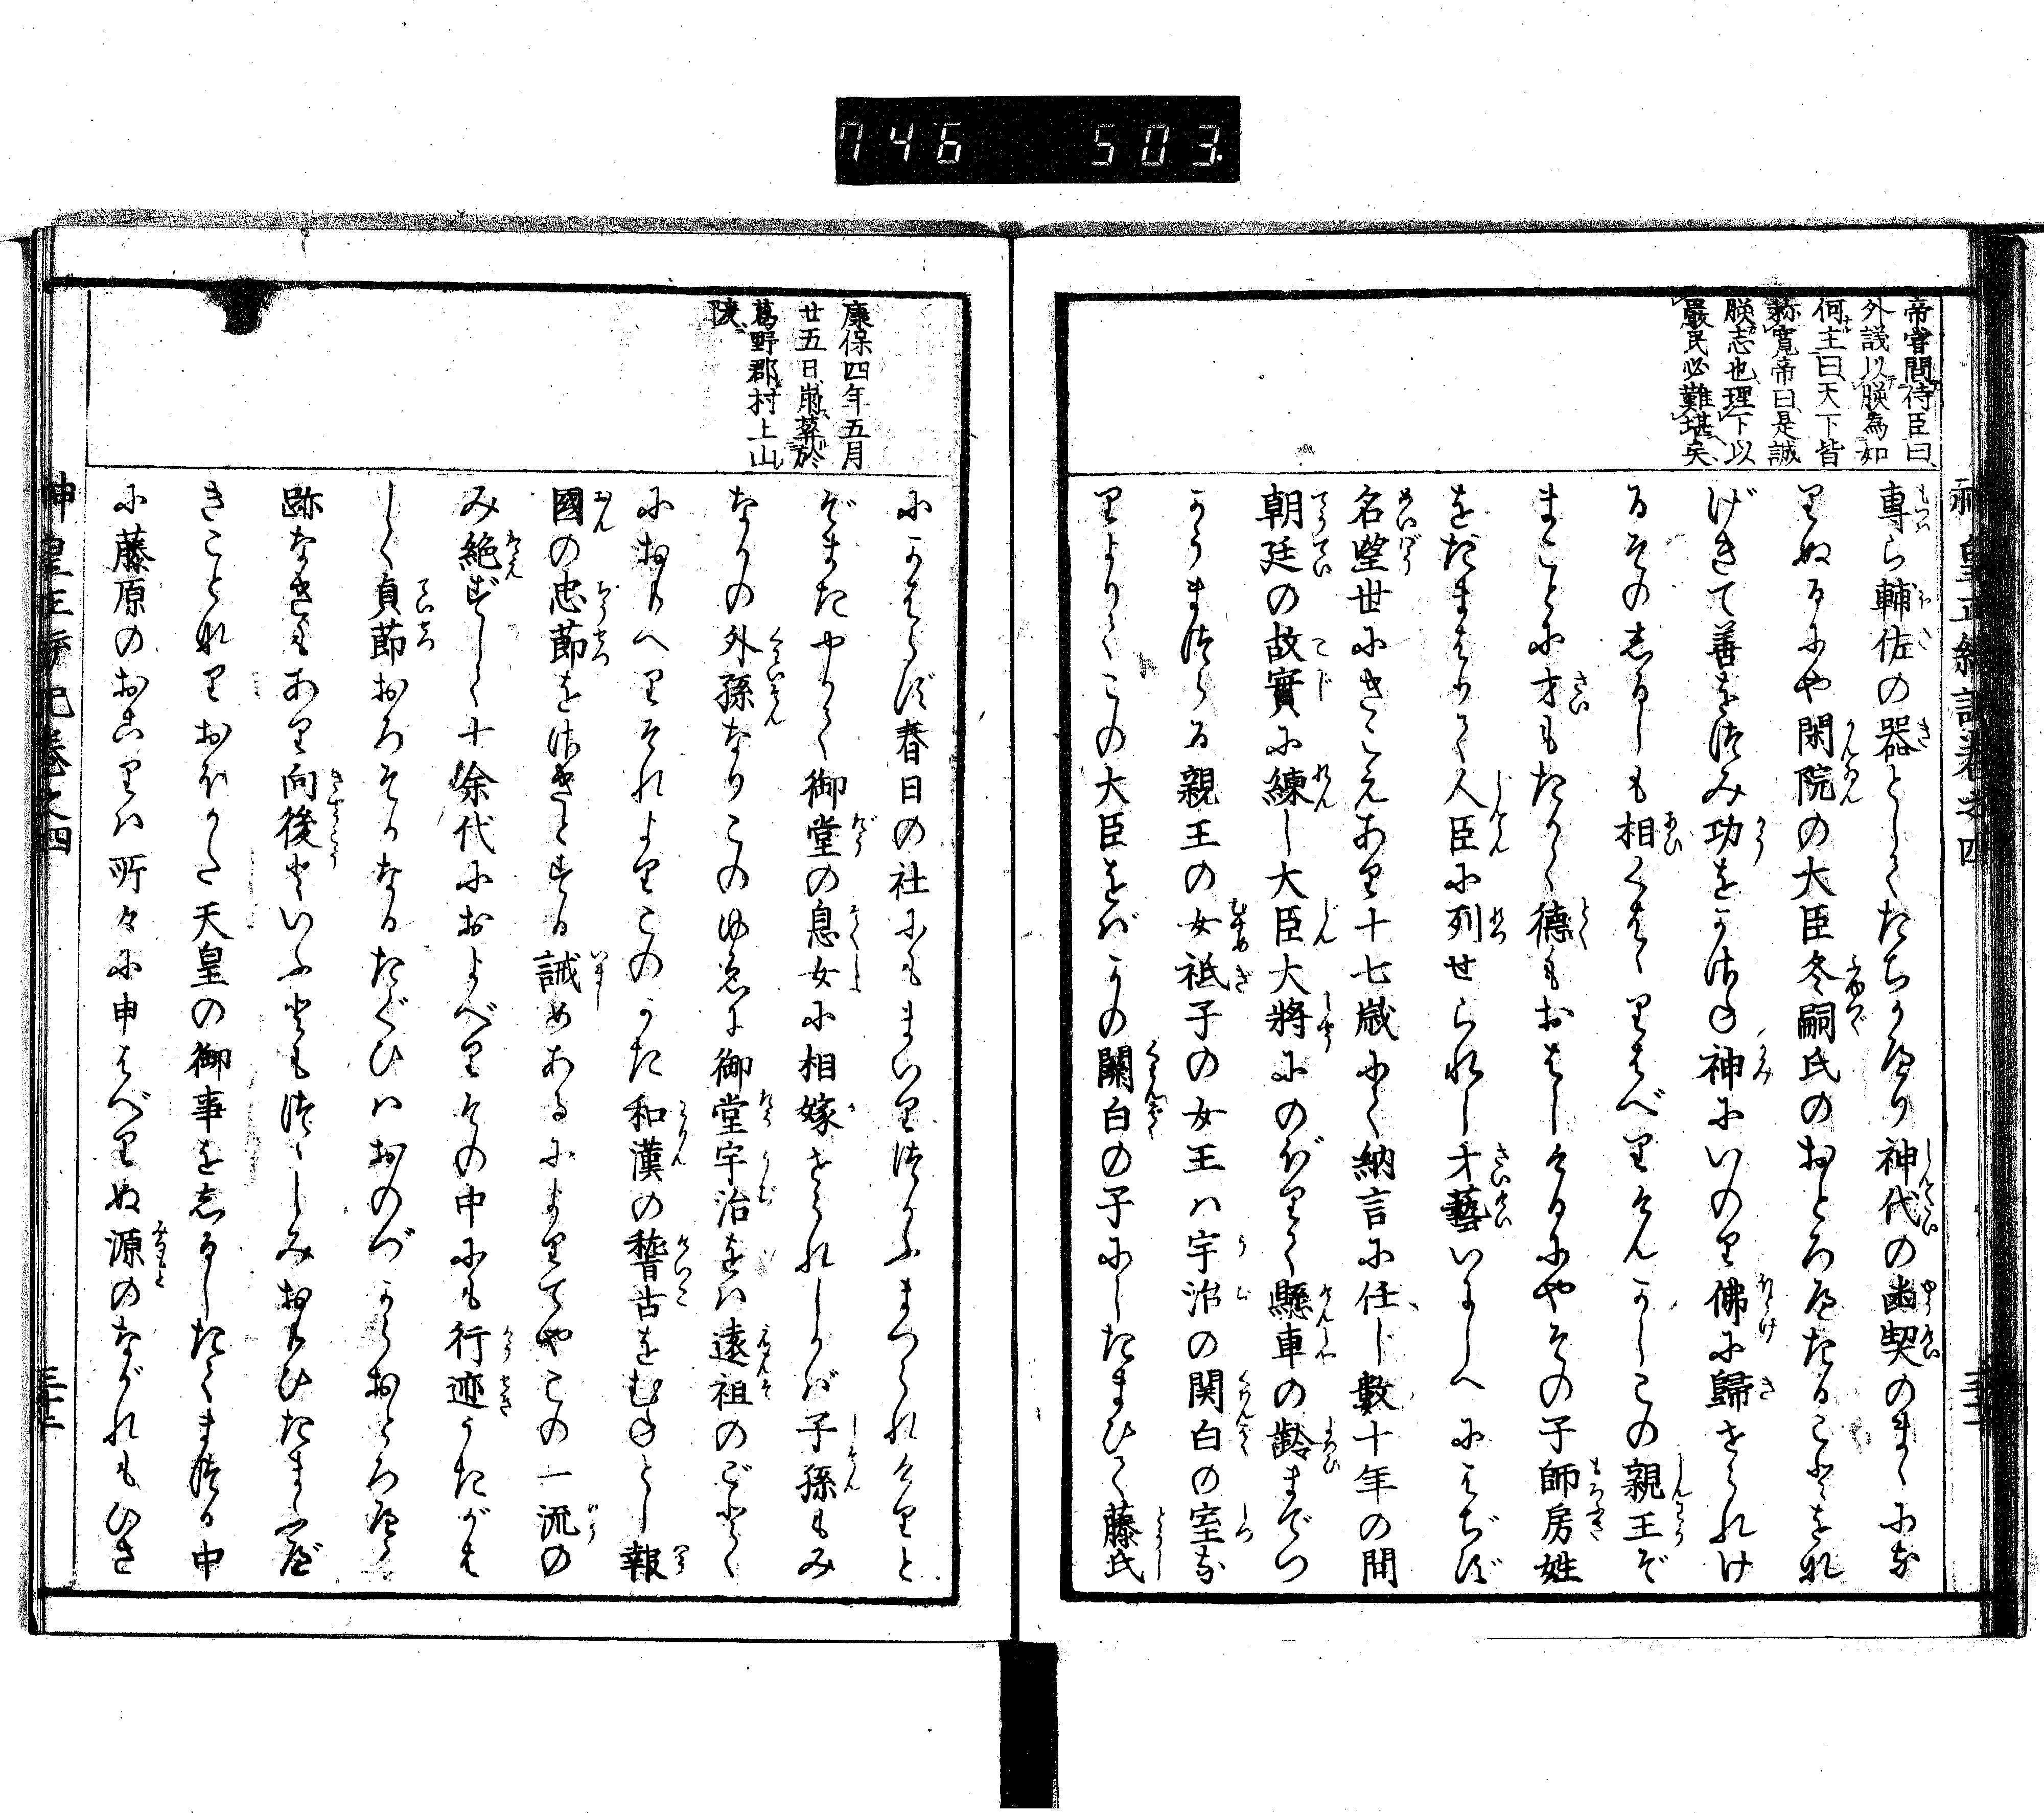 746 503.
神皇正統記巻之四
帝嘗問侍臣曰
外議以朕為如
何主曰天下皆
称寛帝曰是誠
朕志也理下以
嚴民必難堪矣
專ら輔佐の器としてたちかへり神代の幽契のまゝにな
りぬるにや閑院の大臣冬嗣氏のおとろへたることをな
げきて善をつみ功をかさね神にいのり佛に歸せられけ
るそのしるしも相くはゝりはべりけんかしこの親王ぞ
まことに才もたかく德もおはしけるにやその子師房姓
をたまはりて人臣に列せられし才藝いにしへにはぢず
名望世にきこえあり十七歳にて納言に任じ數十年の間
朝廷の故實に練し大臣大將にのぼりて懸車の齢までつ
かうまつらる親王の女祇子の女王ハ宇治の関白の室な
りよりてこの大臣をバかの關白の子にしたまひて藤氏
康保四年五月
廿五日崩葬於
葛野郡村上山
陵
にかはらず春日の社にもまいりつかふまつられけりと
ぞまたやがて御堂の息女に相嫁せられしかバ子孫もみ
なかの外孫なりこのゆゑに御堂宇治をハ遠祖のごとく
におもへりそれよりこのかた和漢の稽古をむねとし報
國の忠節をさきとする誠めあるによりてやこの一流の
み絶ずして十余代におよべりその中にも行迹うたがは
しく貞節おろそかなるたぐひハおのづからおとろへて
跡なきもあり向後といふともつゝしみおもひたまふべ
きことなりおほかた天皇の御事をしるしたてまつる中
に藤原のおこりハ所々に申はべりぬ源のながれもひさ
神皇正統記巻之四